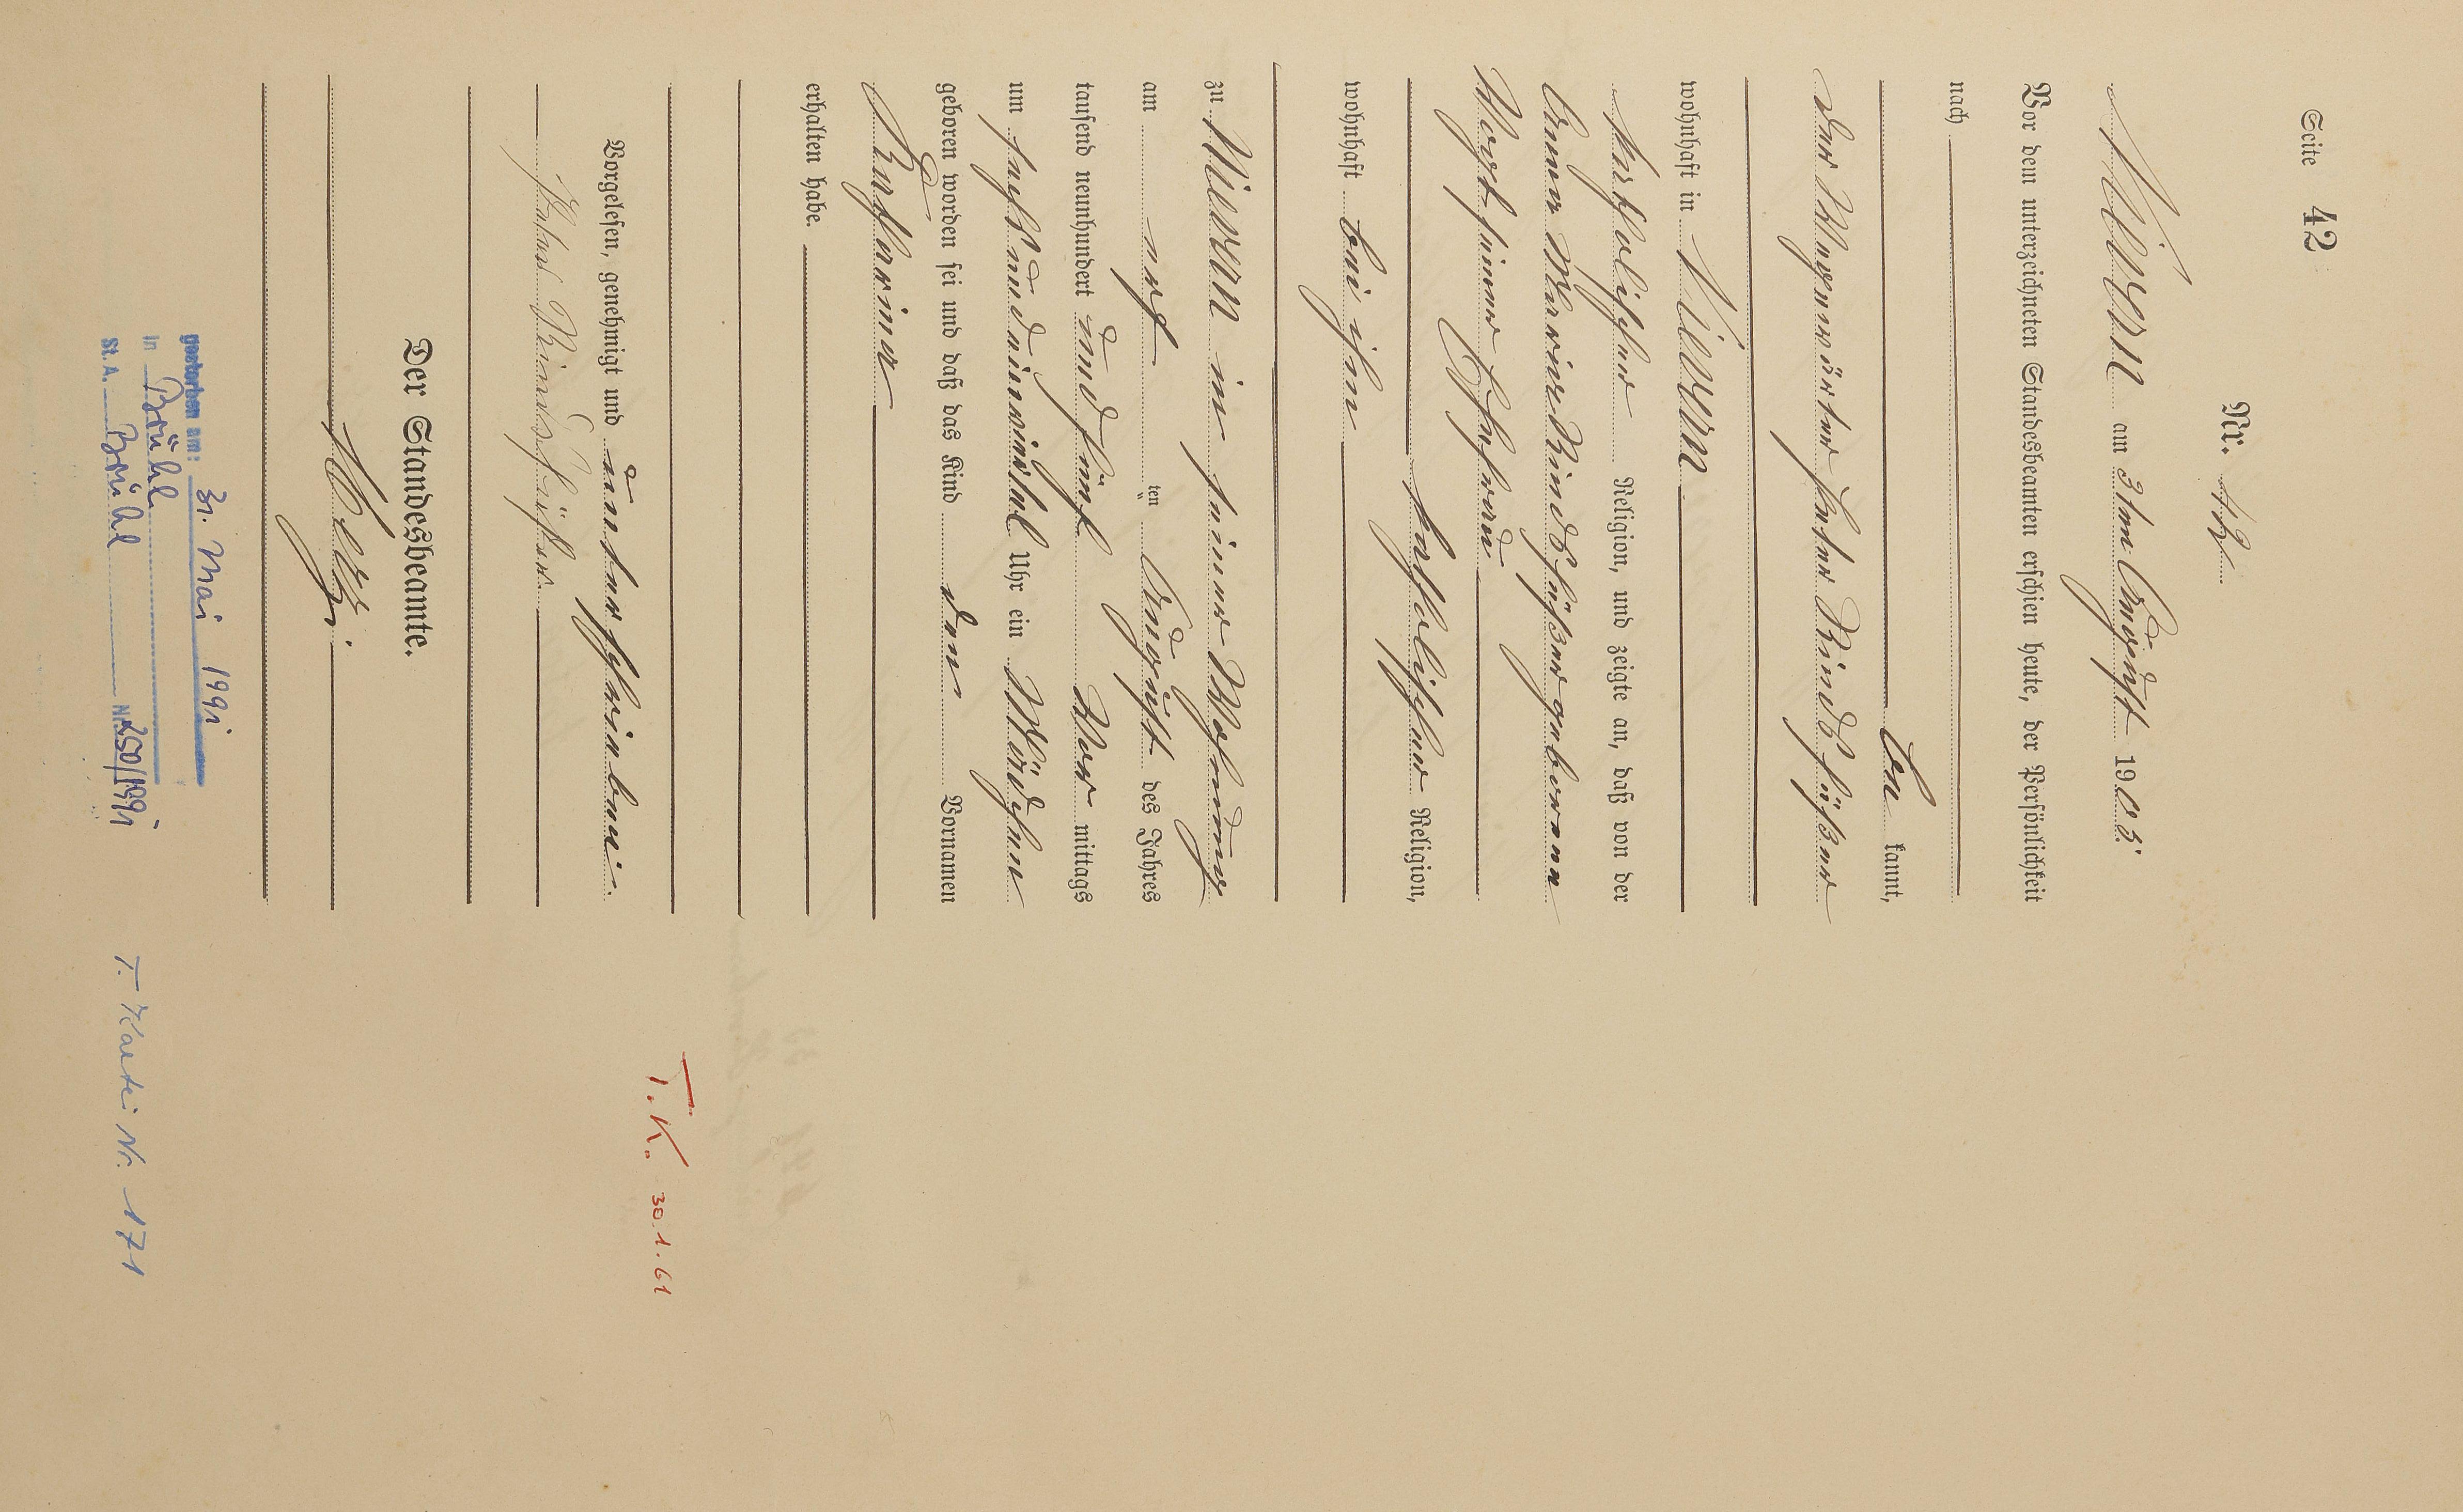 Seite 42
Nr. 42.
Vievern am 31ten August 1905.
Vor dem unterzeichneten Standesbeamten erschien heute, der Persönlichkeit
nach
be kannt,
der Wagenwärter Peter Rindsfüßer
wohnhaft in
katholischer Religion, und zeigte an, daß von der
Anna Maria Rindsfüßer geborenen
Vogt seiner Ehefrau
katholischer Religion,
wohnhaft bei ihm
zu in seiner Wohnung
am des Jahres
tausend neunhundert und fünf Vor mittags
um sechs und dreiviertel Uhr ein Mädchen
geboren worden sei und daß das Kind den Vornamen
Katharina
erhalten habe.
Vorgelesen, genehmigt und unterschrieben.
Peter Rindsfüßer
Der Standesbeamte.
gestorben am: 31. Mai 1991
in Brühl
St. A. Brühl Nr. 250/1991
T. Kartei Nr. 171
T.K. 30.1.61